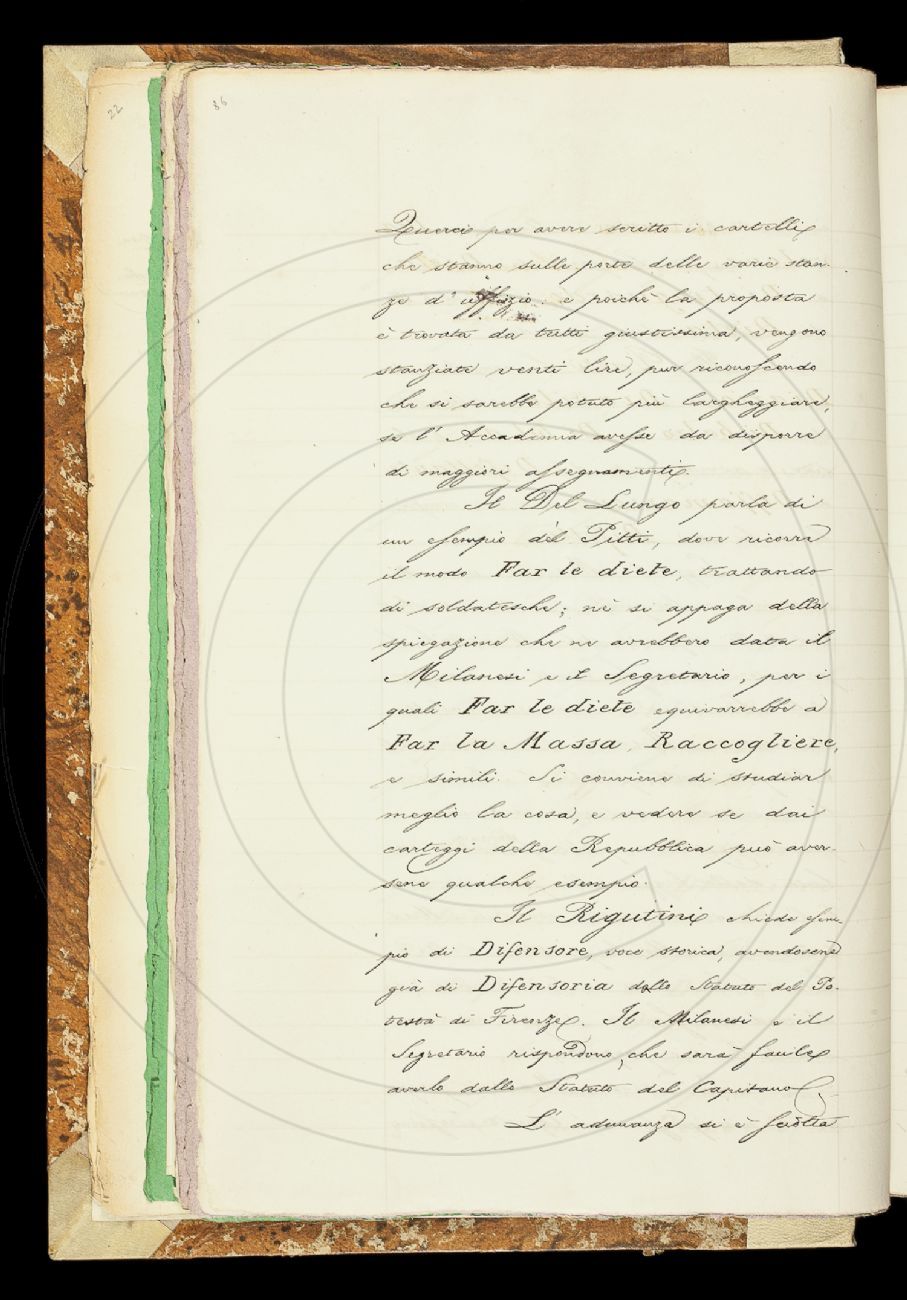 22
86
Querci per avere scritto i cartelli
che stanno sulle porte delle varie stan-
ze d'uffizio: e poichè la proposta
è trovata da tutti giustissima, vengono
stanziate venti lire, pur riconoscendo
che si sarebbe potuto più largheggiare,
se l'Accademia avesse da disporre
di maggiori assegnamenti.
Il Del Lungo parla di
un esempio del Pitti, dove ricorre
il modo Far le diete, trattando
di soldatesche; nè si appaga della
spiegazione che ne avrebbero data il
Milanesi e il Segretario, per i
quali Far le diete equivarrebbe a
Far la Massa, Raccogliere,
e simili. Si conviene di studiar
meglio la cosa, e vedere se dai
carteggi della Repubblica può aver-
sene qualche esempio.
Il Rigutini chiede esem-
pio di Difensore, voce storica, avendosene
già di Difensoria dallo Statuto del Po-
testà di Firenze. Il Milanesi e il
Segretario rispondono, che sarà facile
averlo dallo Statuto del Capitano.
L'adunanza si è sciolta